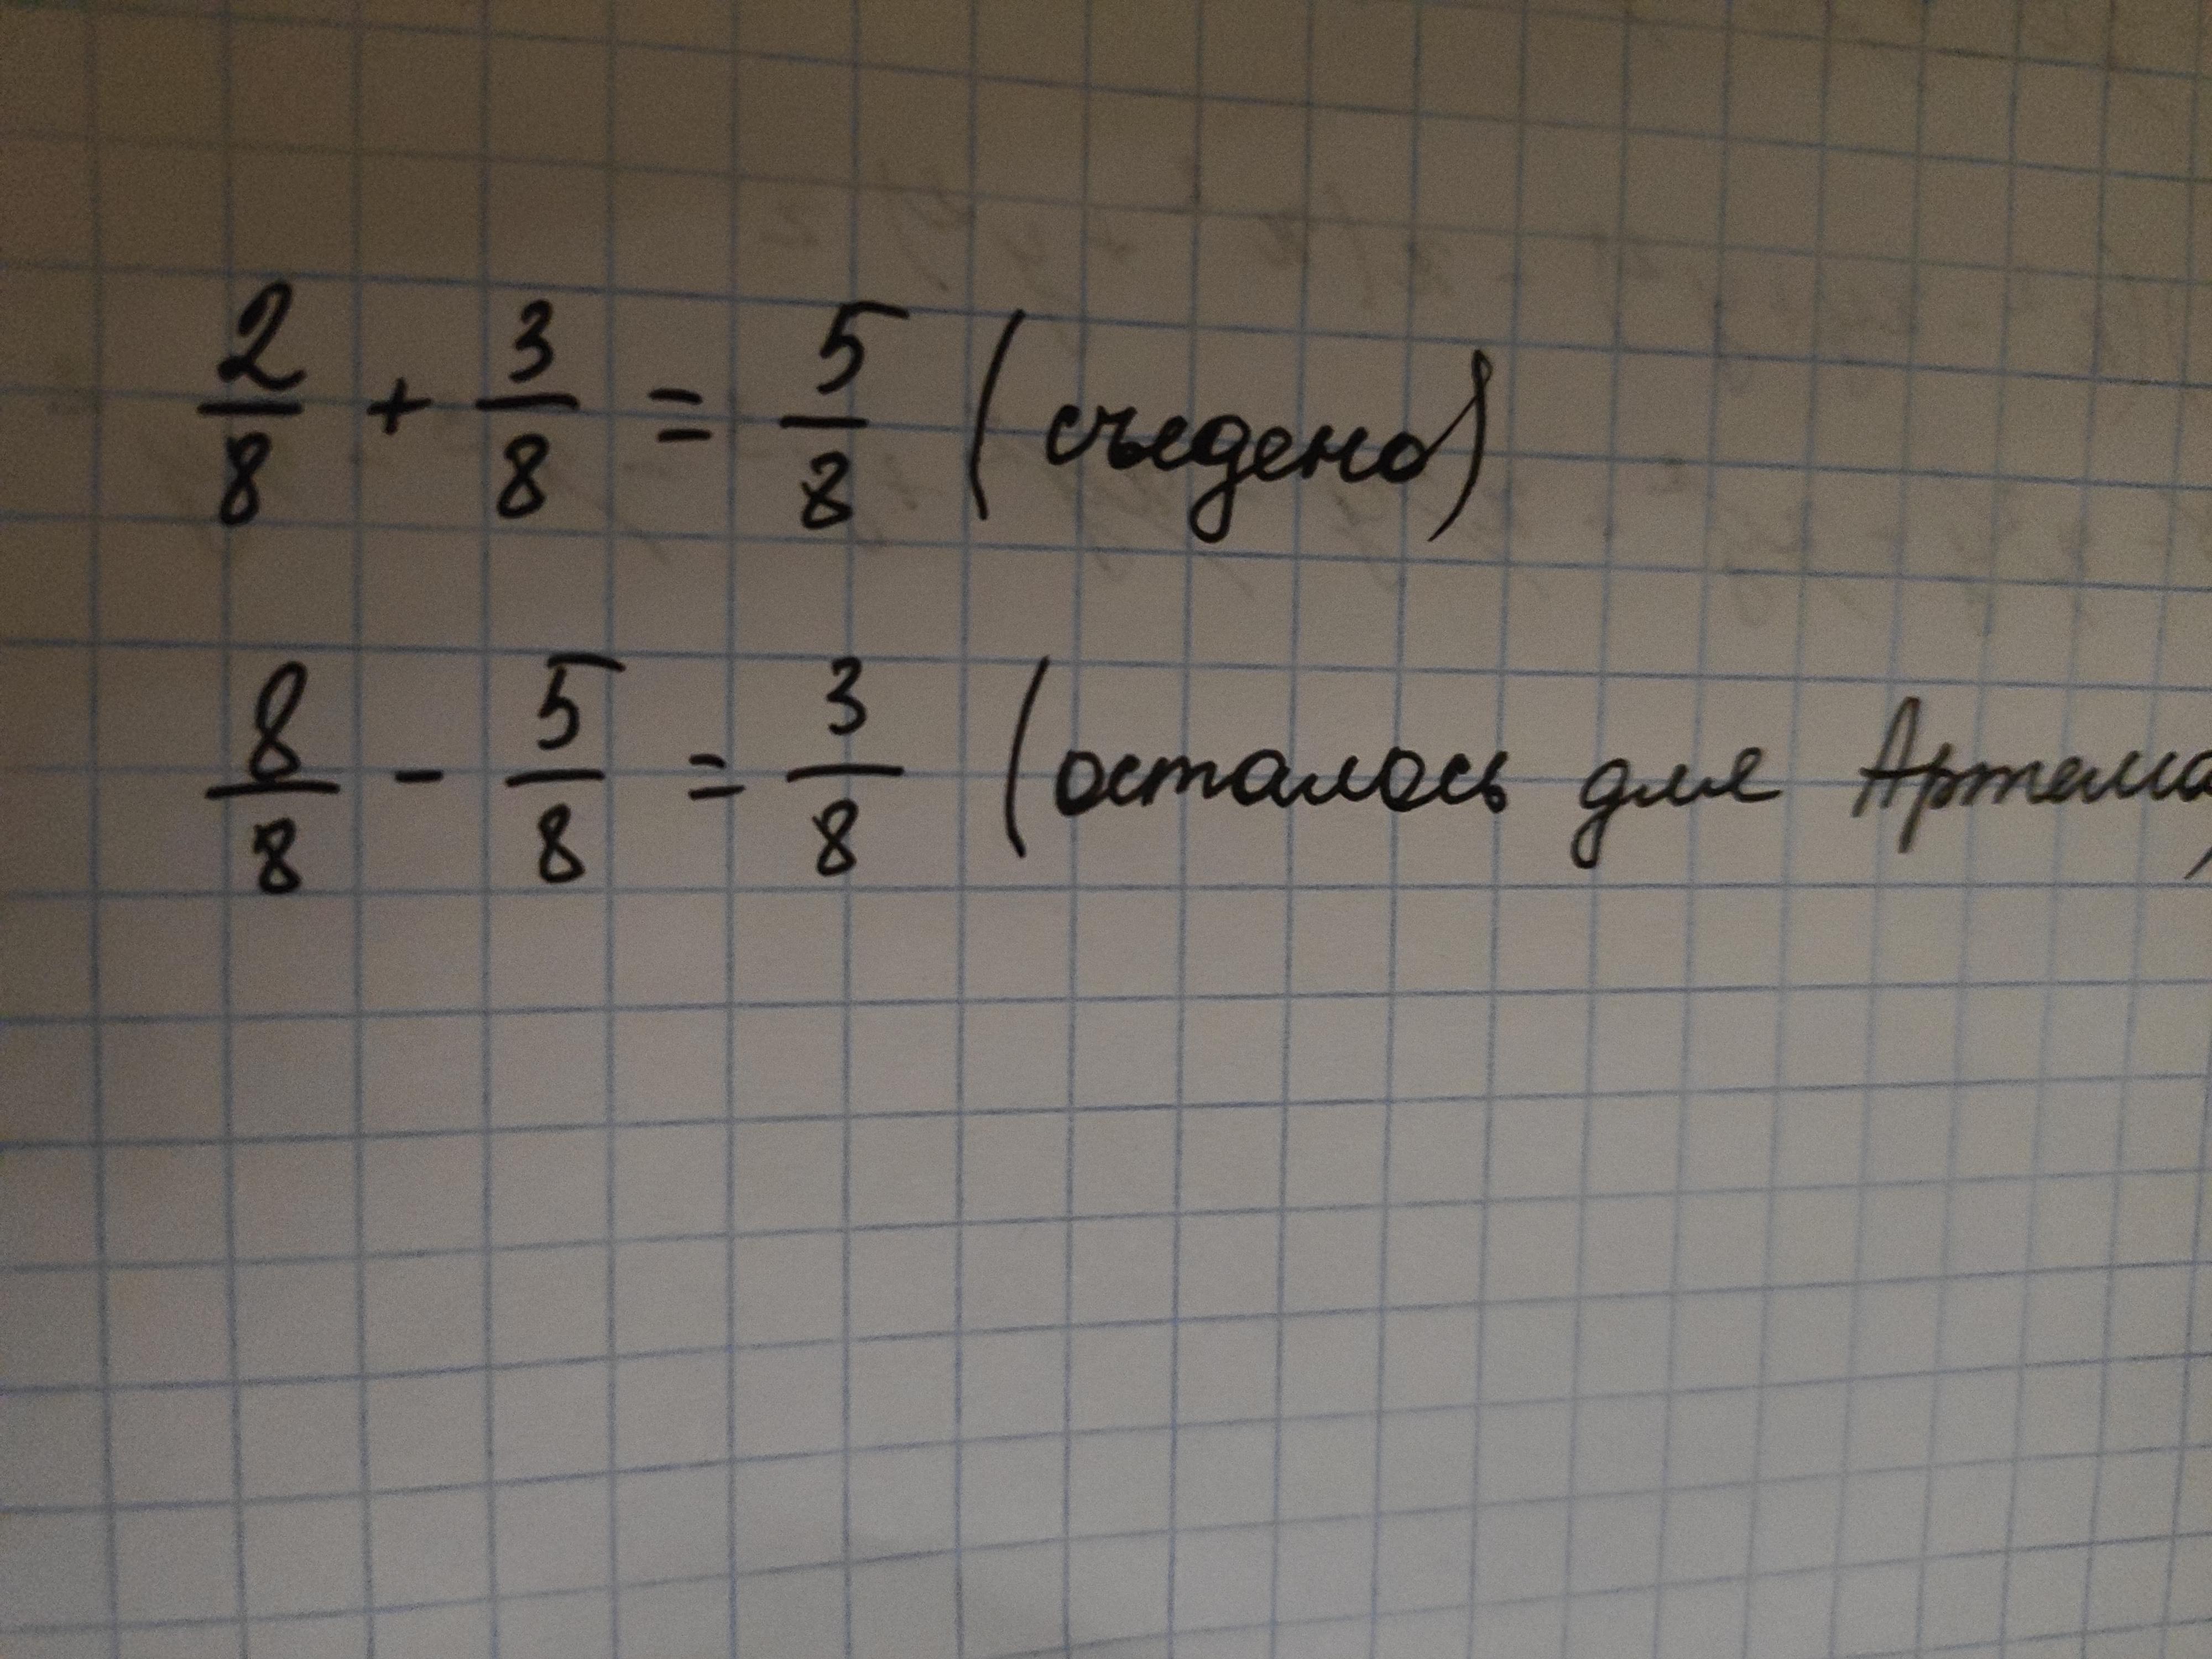 2/8 + 3/8 = 5/8 (съедено)
8/8 - 5/8 = 3/8 (осталось для Артема)